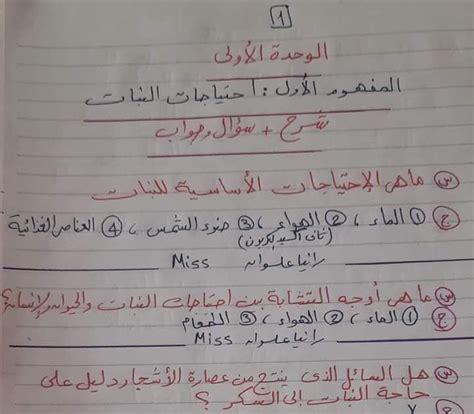 1
الوحدة الأولى
المفهوم الأول : احتياجات النبات
شرح + سؤال وجواب
س ما هي الإحتياجات الأساسية للنبات
ج ① الماء ، ② الهواء ، ③ ضوء الشمس ، ④ العناصر الغذائية
(ثاني أكسيد الكربون)
رانيا علوان Miss
س ما هي أوجه التشابة بين احتياجات النبات والحيوان والإنسان؟
ج ① الماء ، ② الهواء ، ③ الطعام
رانيا علوان Miss
س هل السائل الذى ينتج من عصارة الأشجار دليل على
حاجة النبات إلى السكر ؟
ج